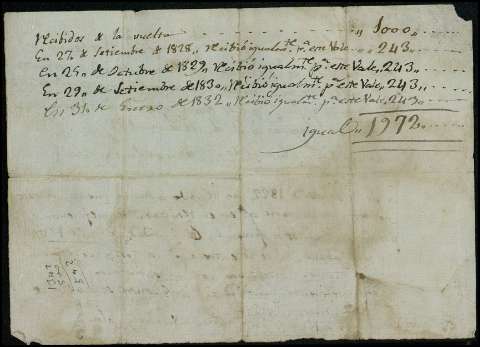 Recibidos de la vuelta „ 1000„
En 27 de Setiembre de 1828„ recibió igualmte. pr. este Vale „ 243„
En 25„ de Octubre de 1829„ recibió igualmte. pr. este Vale„ 243„
En 29„ de Setiembre de 1830„ recibió igualmte. pr. este Vale„ 243„
En 31„ de Enero de 1832„ recibió igualmte. pr. este Vale„ 243„
igual„ 1972„